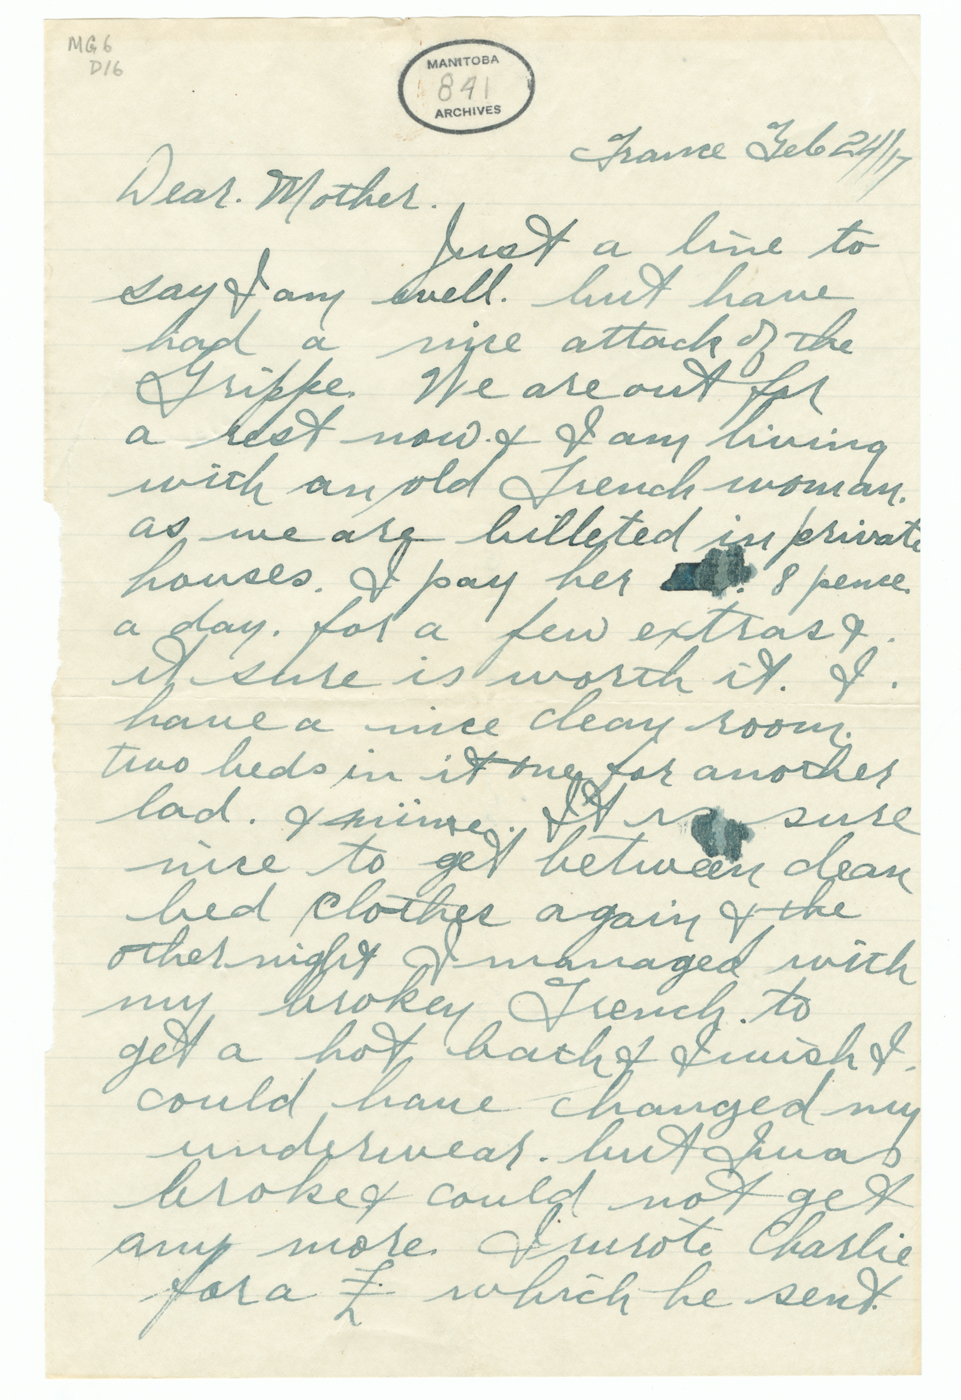 MG6
D16
MANITOBA
841
ARCHIVES
France Feb 24/17
Dear. Mother.
Just a line to
say I am well. but have
had a nice attack of the
Grippe. We are out for
a rest now. & I am living
with an old French woman.
as we are billeted in private
houses. I pay her 8 pence.
a day. for a few extras &.
it sure is worth it. I.
have a nice clean room.
two beds in it one for another
lad. & mine. It is sure
nice to get between clean
bed clothes again & the
other night I managed with
my broken French. to
get a hot bath & I wish I.
could have changed my
underwear. but I was
broke & could not get
any more. I wrote Charlie
for a £ which he sent.